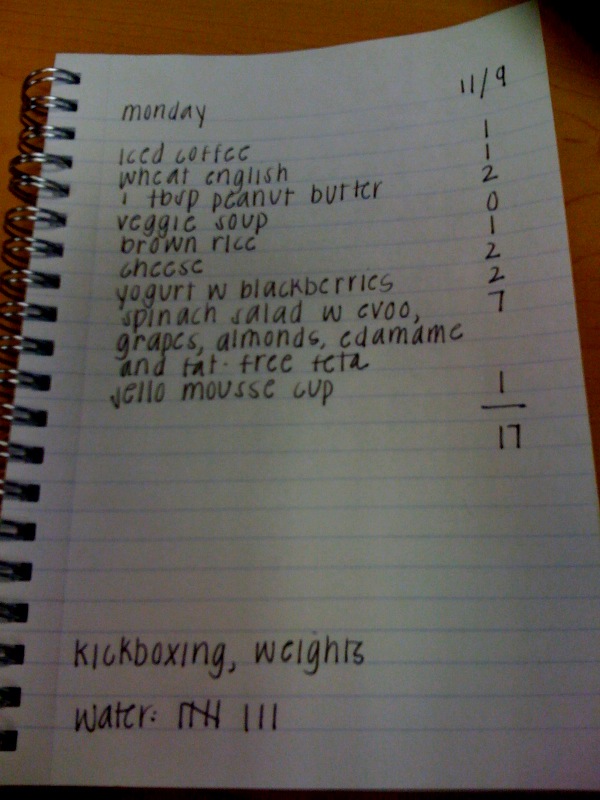 11/9
monday
iced coffee 1
wheat english 1
1 tbsp peanut butter 2
veggie soup 0
brown rice 1
cheese 2
yogurt w blackberries 2
spinach salad w evoo, 7
grapes, almonds, edamame
and fat-free feta
jello mousse cup 1
17
kickboxing, weights
water: 𝍸 |||